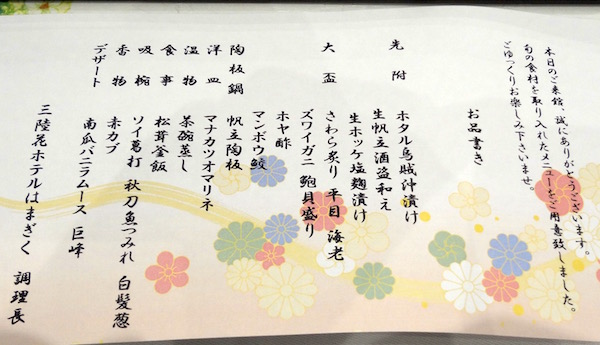 本日のご来館、誠にありがとうございます。
旬の食材を取り入れたメニューをご用意致しました。
ごゆっくりお楽しみ下さいませ。
お品書き
先附 ホタル烏賊沖漬け
生帆立酒盗和え
生ホッケ塩麹漬け
大盃 さわら炙り 平目 海老
ズワイガニ 鮑貝盛り
ホヤ酢
マンボウ鮫
陶板鍋 帆立陶板
洋皿 マナカツオマリネ
温物 茶碗蒸し
食事 松茸釜飯
吸椀 ソイ葛打 秋刀魚つみれ 白髪葱
香物 赤カブ
デザート 南瓜バニラムース 巨峰
三陸花ホテルはまぎく 調理長